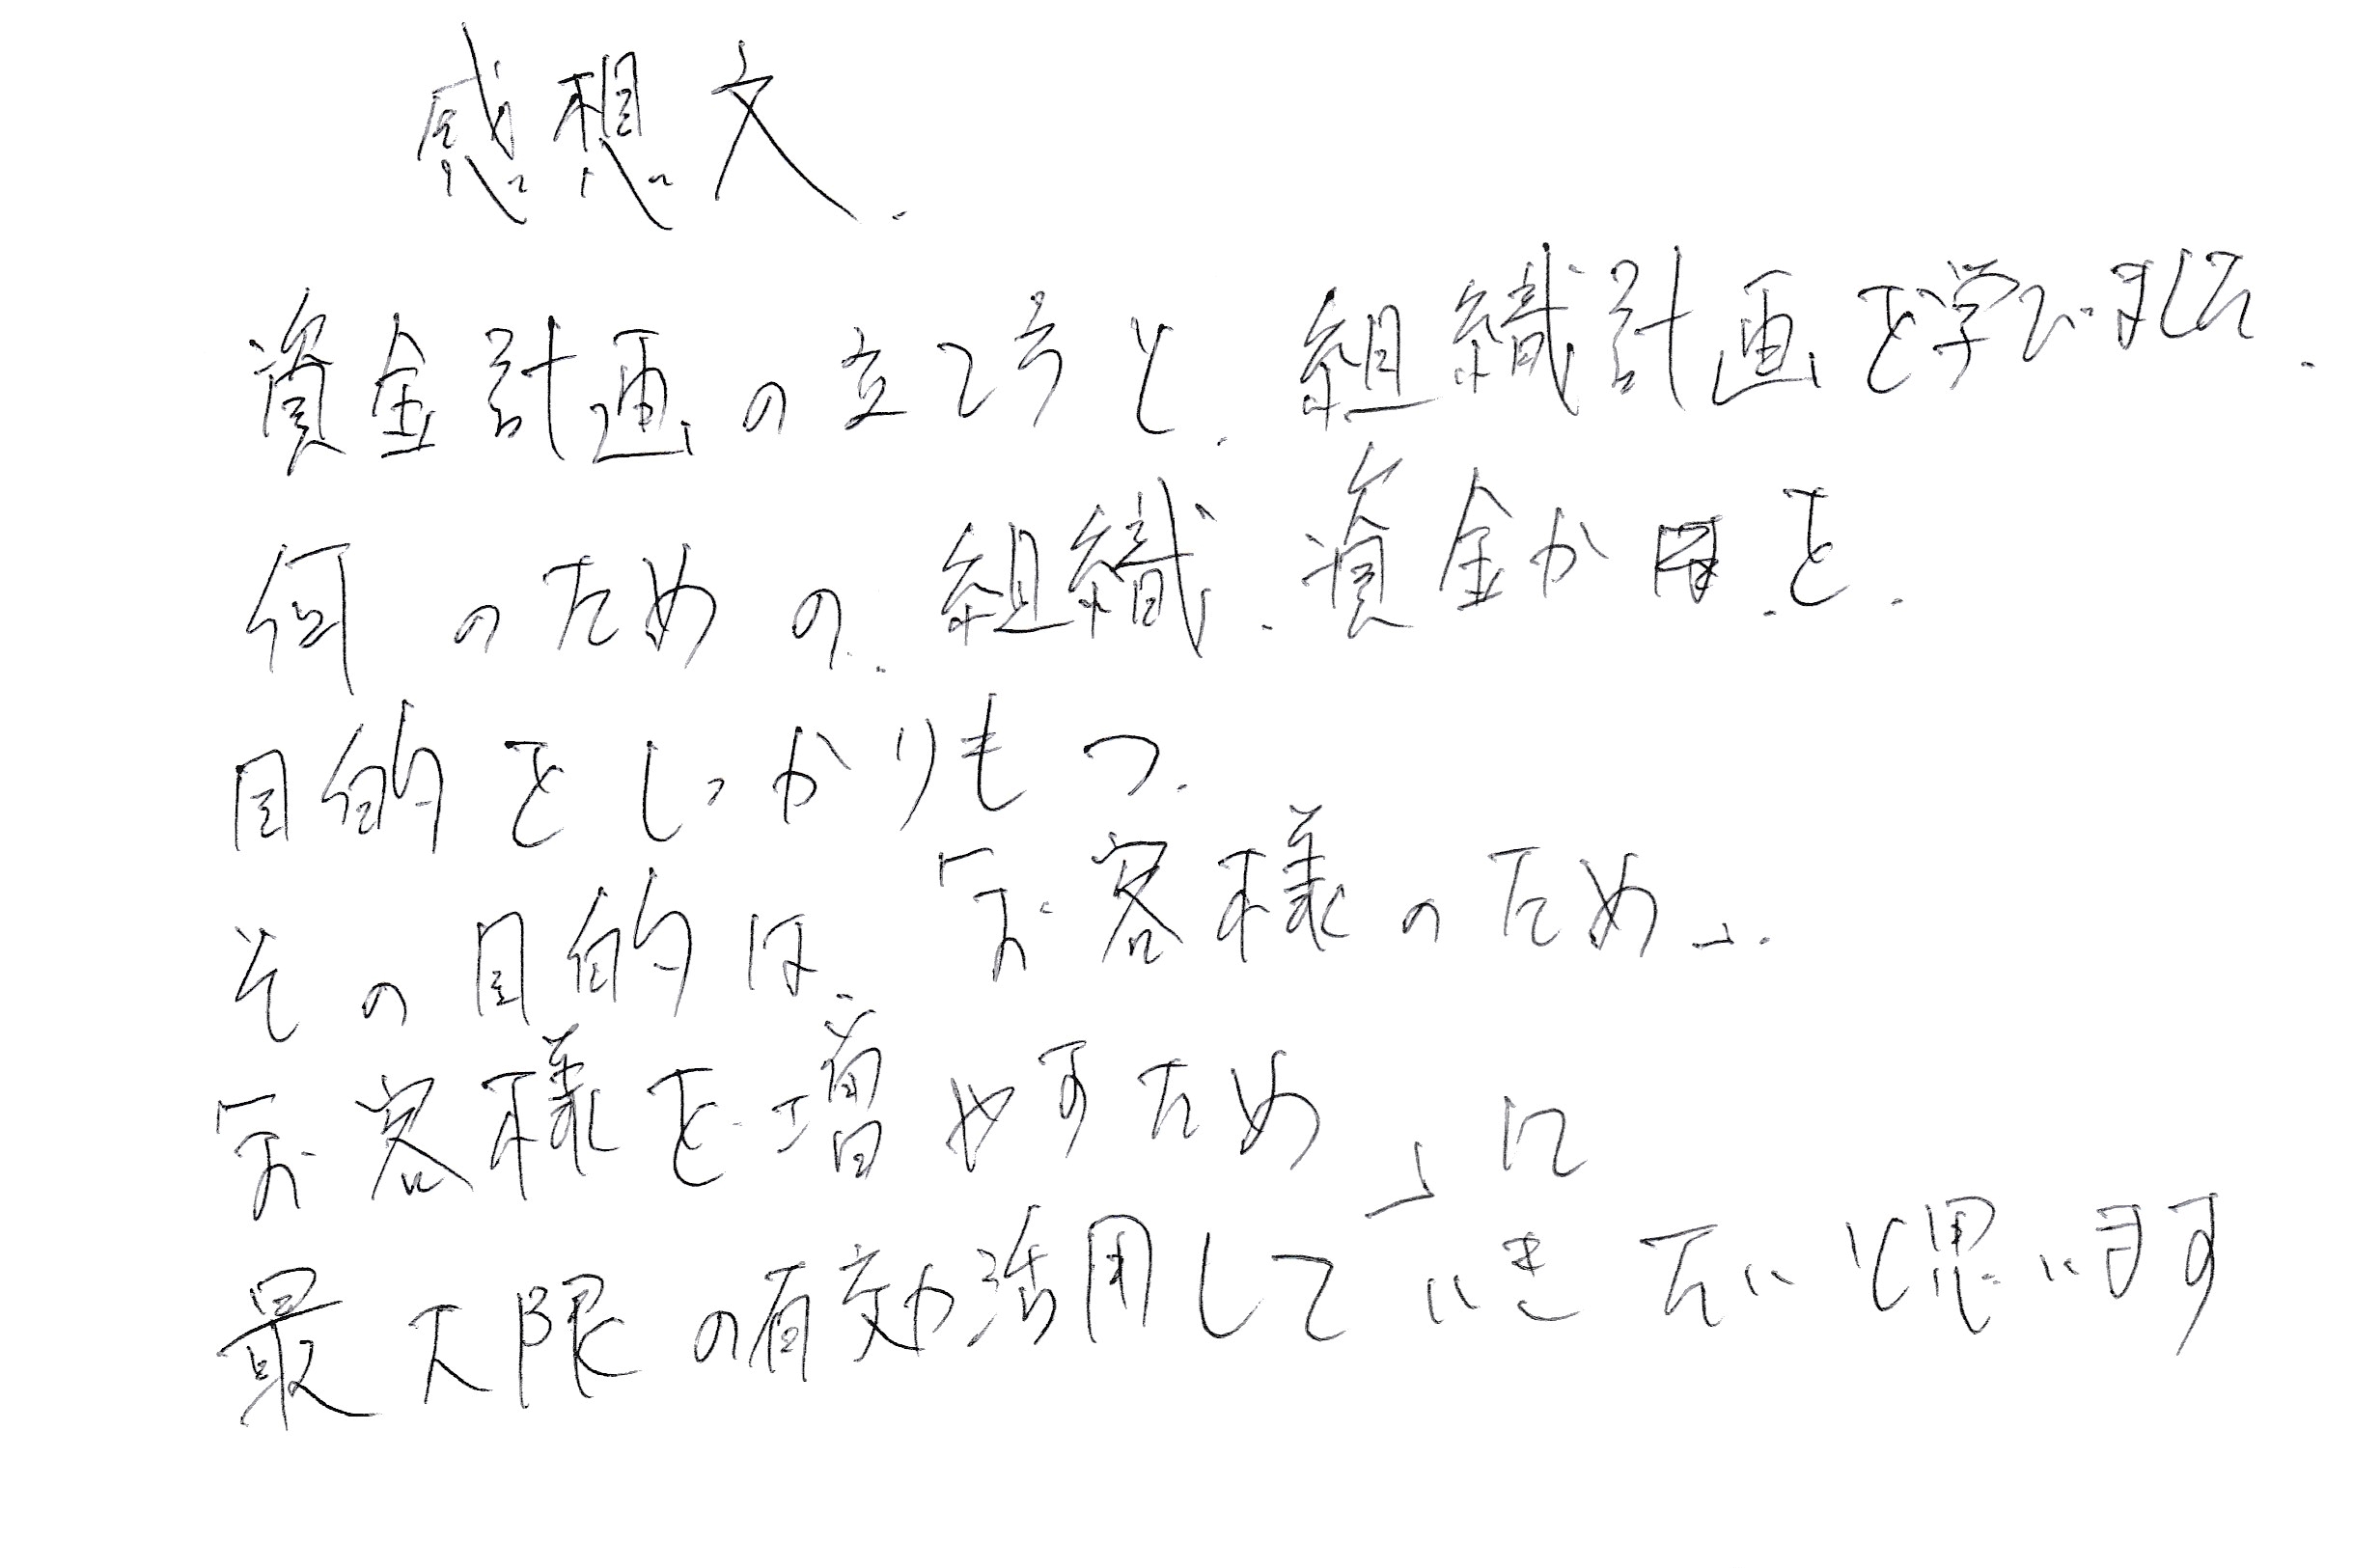 感想文.
資金計画の立て方と、組織計画を学びました.
何のための、組織、資金か、を.
目的をしっかりもつ.
その目的は、「お客様のため」.
「お客様を増やすため」に
最大限の有効活用していきたいと思います